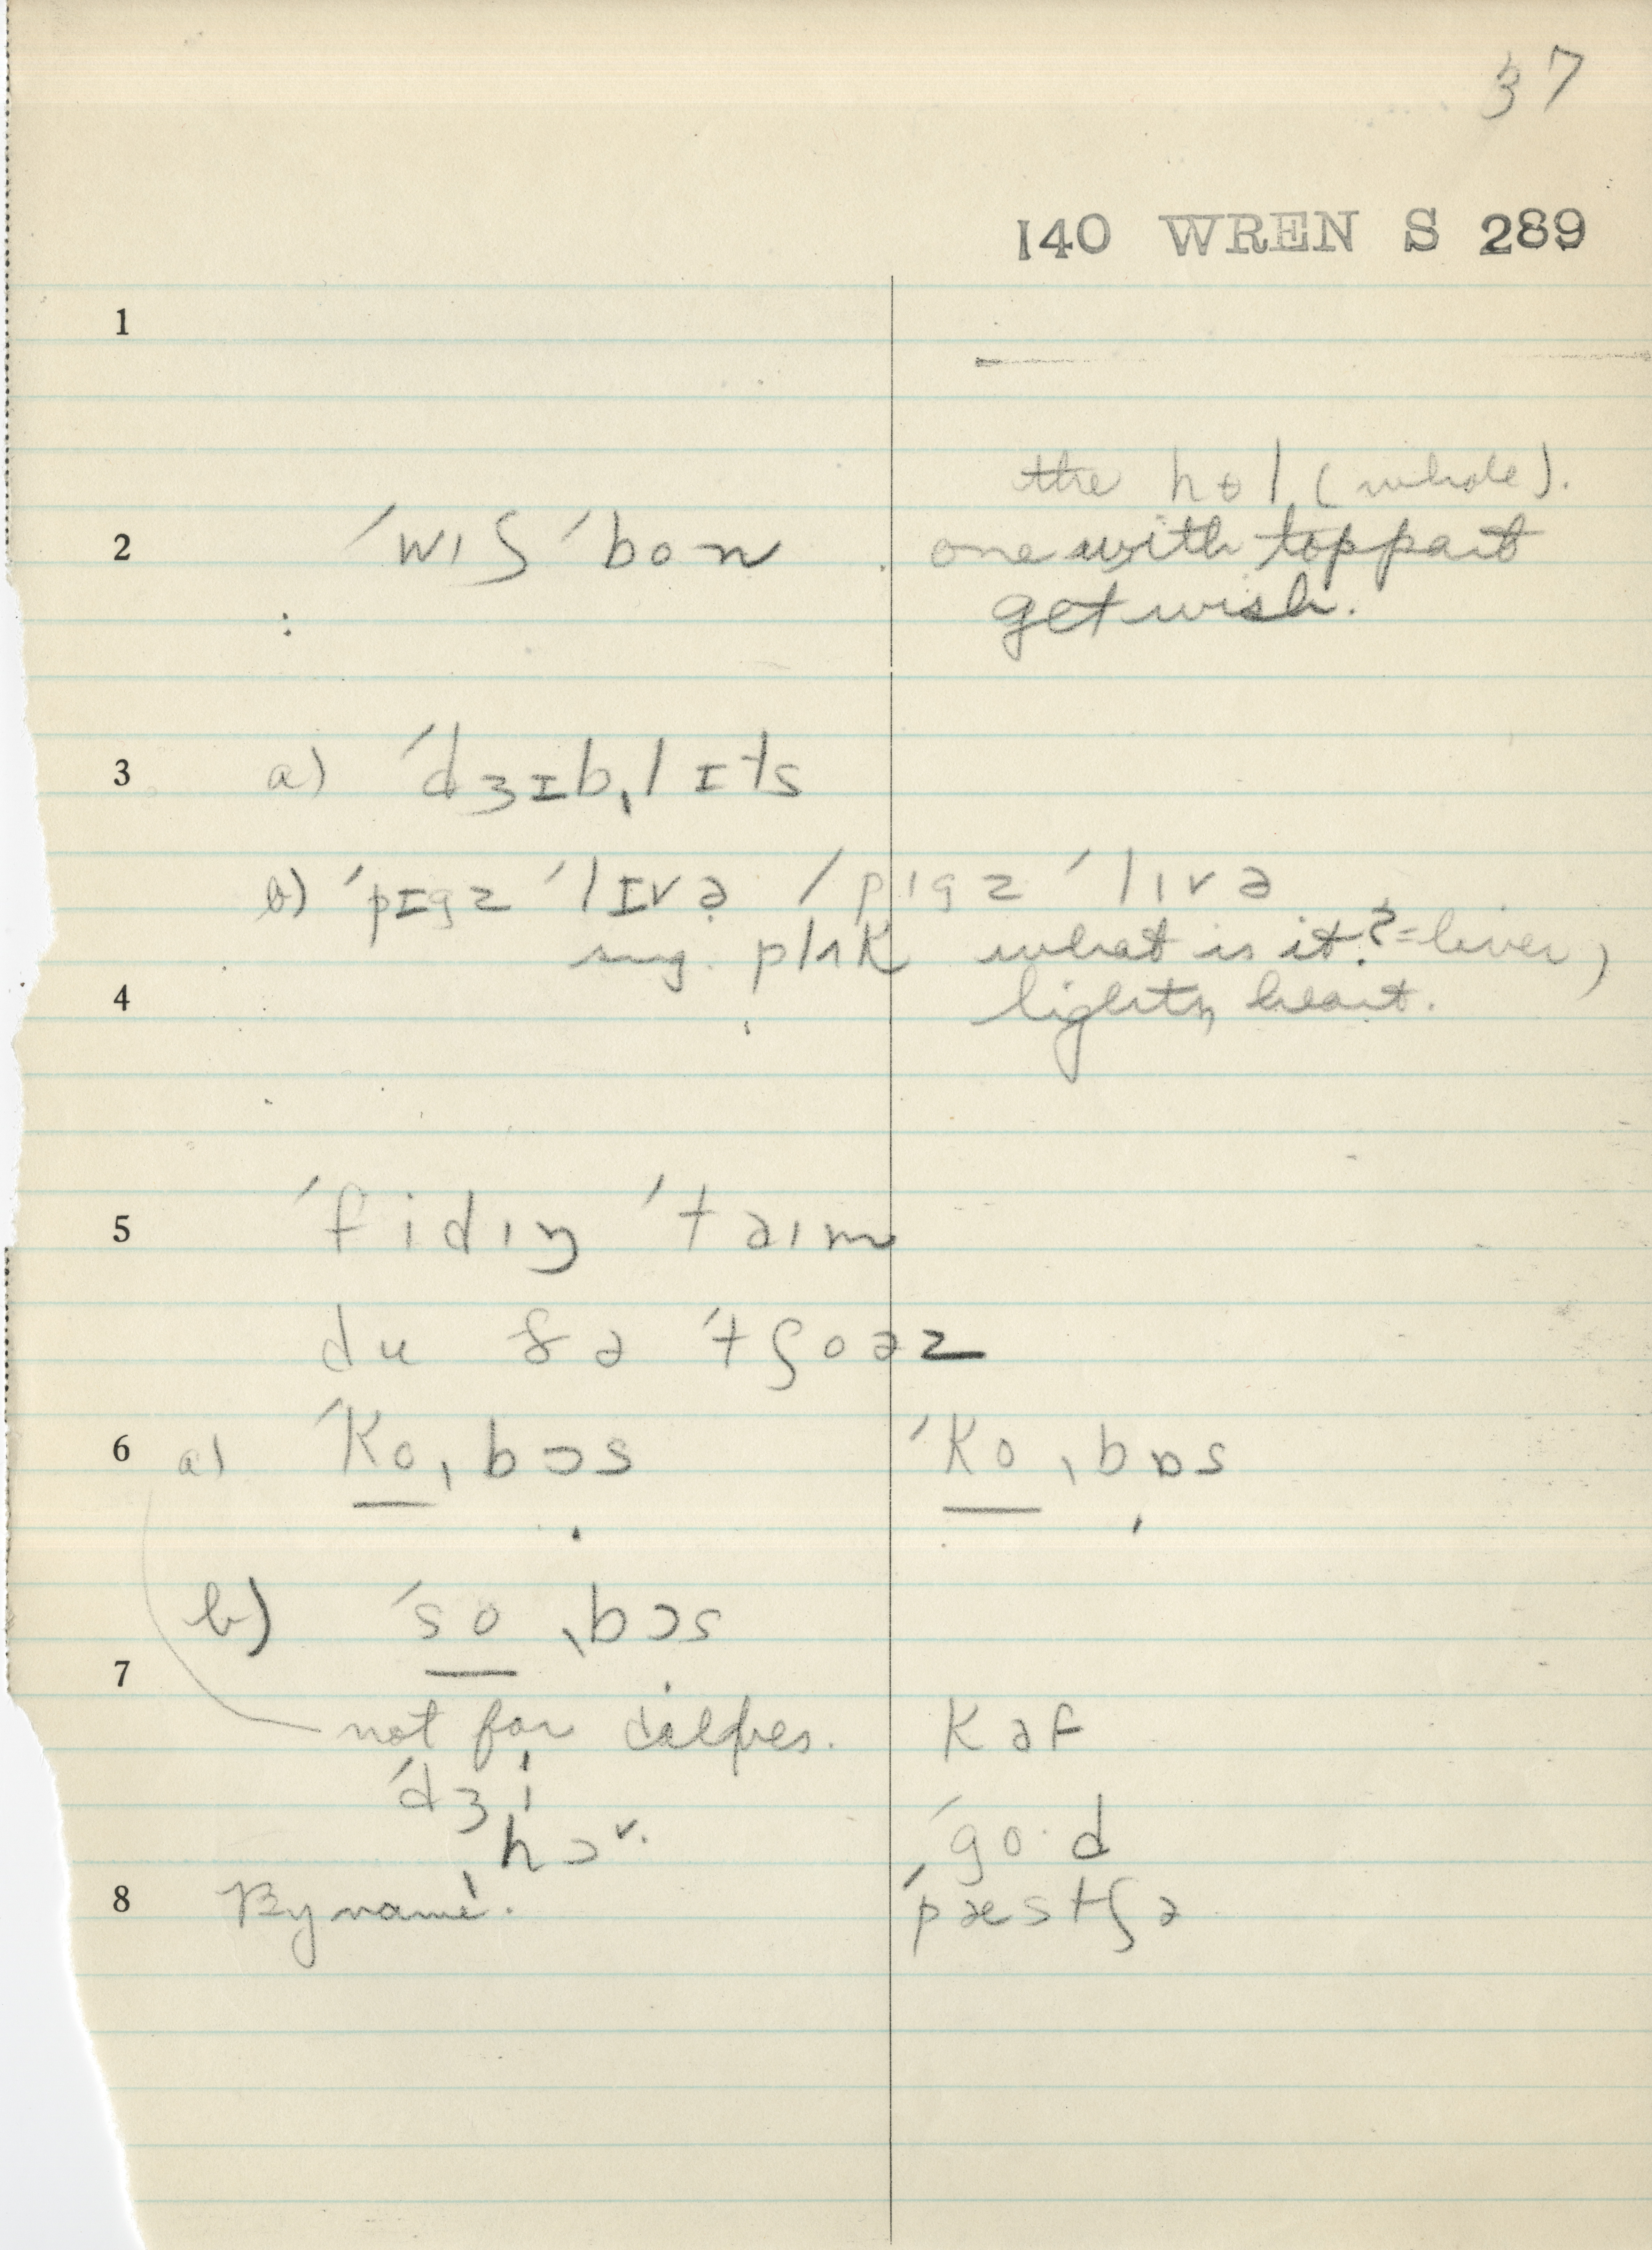 37
140 WREN S 289
1
the hɵl (whole).
2 ˈwɪʃ ˈbon . one with top part
get wish.
3 a) ˈdʒɪbˌlɪts
b) ˈpɪgz ˈlɪvə / pɪgz ˈlɪvə
sug. plʌk what is it? = liver,
4 lights, heart.
5 ˈfidɪŋ ˈtaɪm
du ðə ˈtʃoəz
6 a) ˈkoˌbɔs ˈkoˌbɒs
b) ˈsoˌbɔs
7
not for calves. kaf
ˈdʒi
hɔ
ˈgo·d
8 By name. ˈpæstʃə